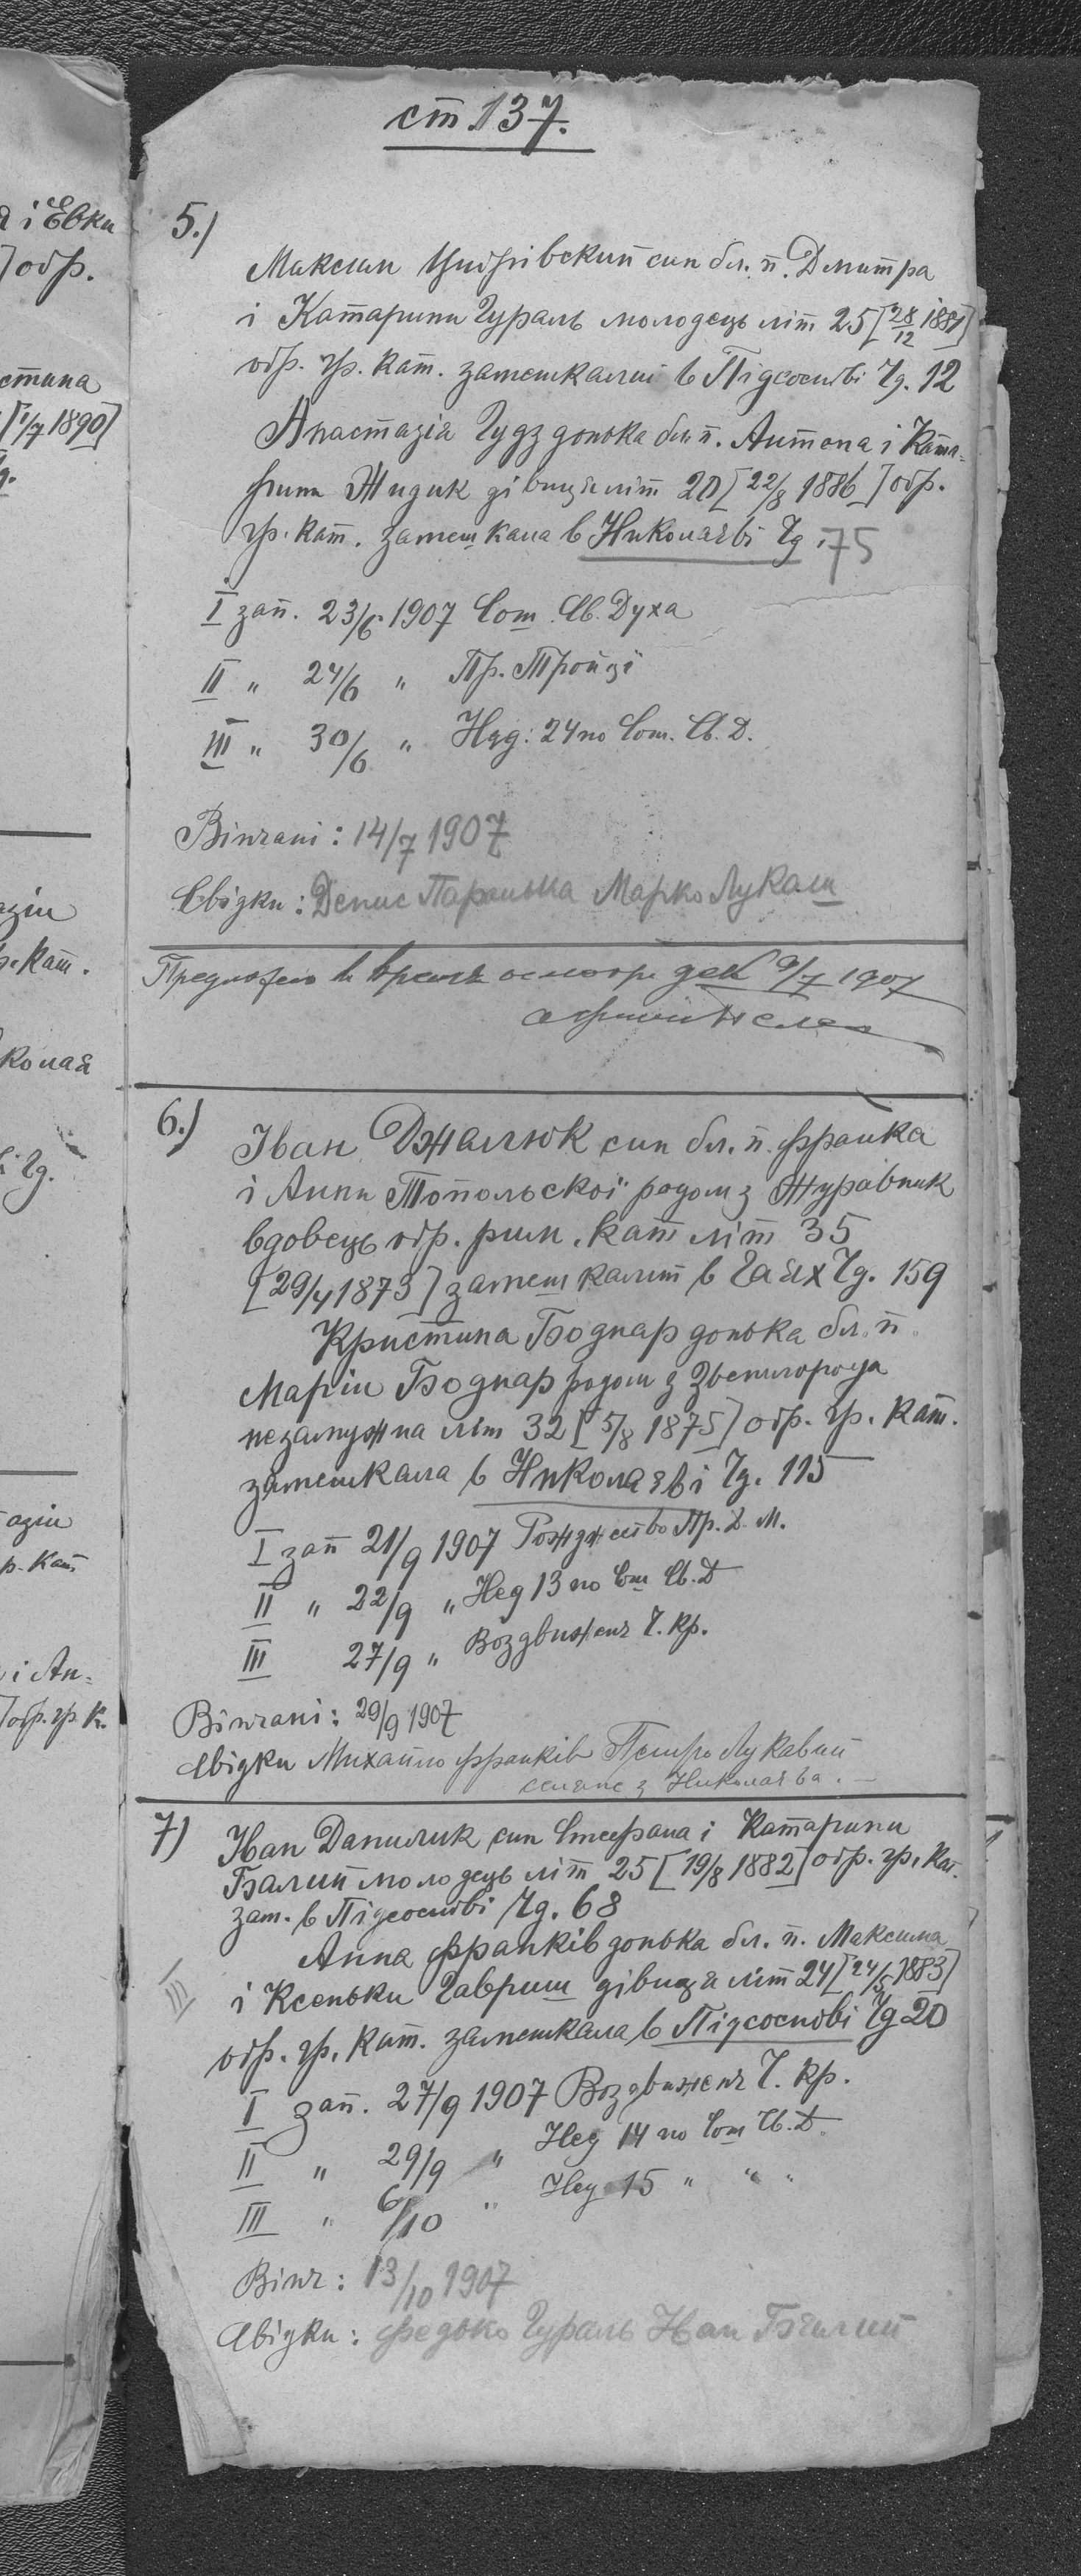 ст 137.
5.)
Максим Цидрівский син бл. п. Дмитра
і Катарини Гураль молодець літ 25 [28/12 1881]
обр. гр. кат. замешкалий в Підсоснові Чд. 12
Анастазія Гудз донька бл. п. Антона і Ката-
рини Жидик дівиця літ 20 [22/8 1886] обр.
гр. кат. замешкала в Николаєві Чд. 75
I зап. 23/6 1907 Сош. Св. Духа
II " 24/6 " Пр. Тройці
III " 30/6 " Нед: 24 по Сош. Св. Д.
Вінчані: 14/7 1907
Свідки: Денис Паранька Марко Лукаш
в время 9/7 1907
6.)
Іван Джалюк син бл. п. Франка
і Анни Топольскої родом з Журавник
вдовець обр. рим. кат літ 35
[29/4 1873] замешкалий в Гаях Чд. 159
Кристина Боднар донька бл. п.
Марії Боднар родом з Звенигорода
незамужна літ 32 [5/8 1875] обр. гр. кат.
замешкала в Николаєві Чд. 115
I зап 21/9 1907 Рождество Пр. Д. М.
II " 22/9 " Нед 13 по Сош Св. Д
III 27/9 " Воздвиженє Ч. Кр.
Вінчані: 29/9 1907
Свідки Михайло Франків Петро Лукавий
селяне з Николаєва. —
7)
Іван Данилик син Стефана і Катарини
Балий молодець літ 25 [19/8 1882] обр. гр. кат.
зам. в Підсоснові Чд. 68
Анна Франків донька бл. п. Максима
і Ксеньки Гавриш дівиця літ 24 [24/5 1883]
обр. гр. кат. замешкала в Підсоснові Чд 20
I зап. 27/9 1907 Воздвиженє Ч. Кр.
II " 29/9 " Нед 14 по Сош Св. Д.
III " 6/10 " Нед 15 " " "
Вінч: 13/10 1907
Свідки: Федько Гураль Іван Балий
і Евки
обр.
[1/7 1890]
кат.
Чд.
і Ан-
обр. гр. к.